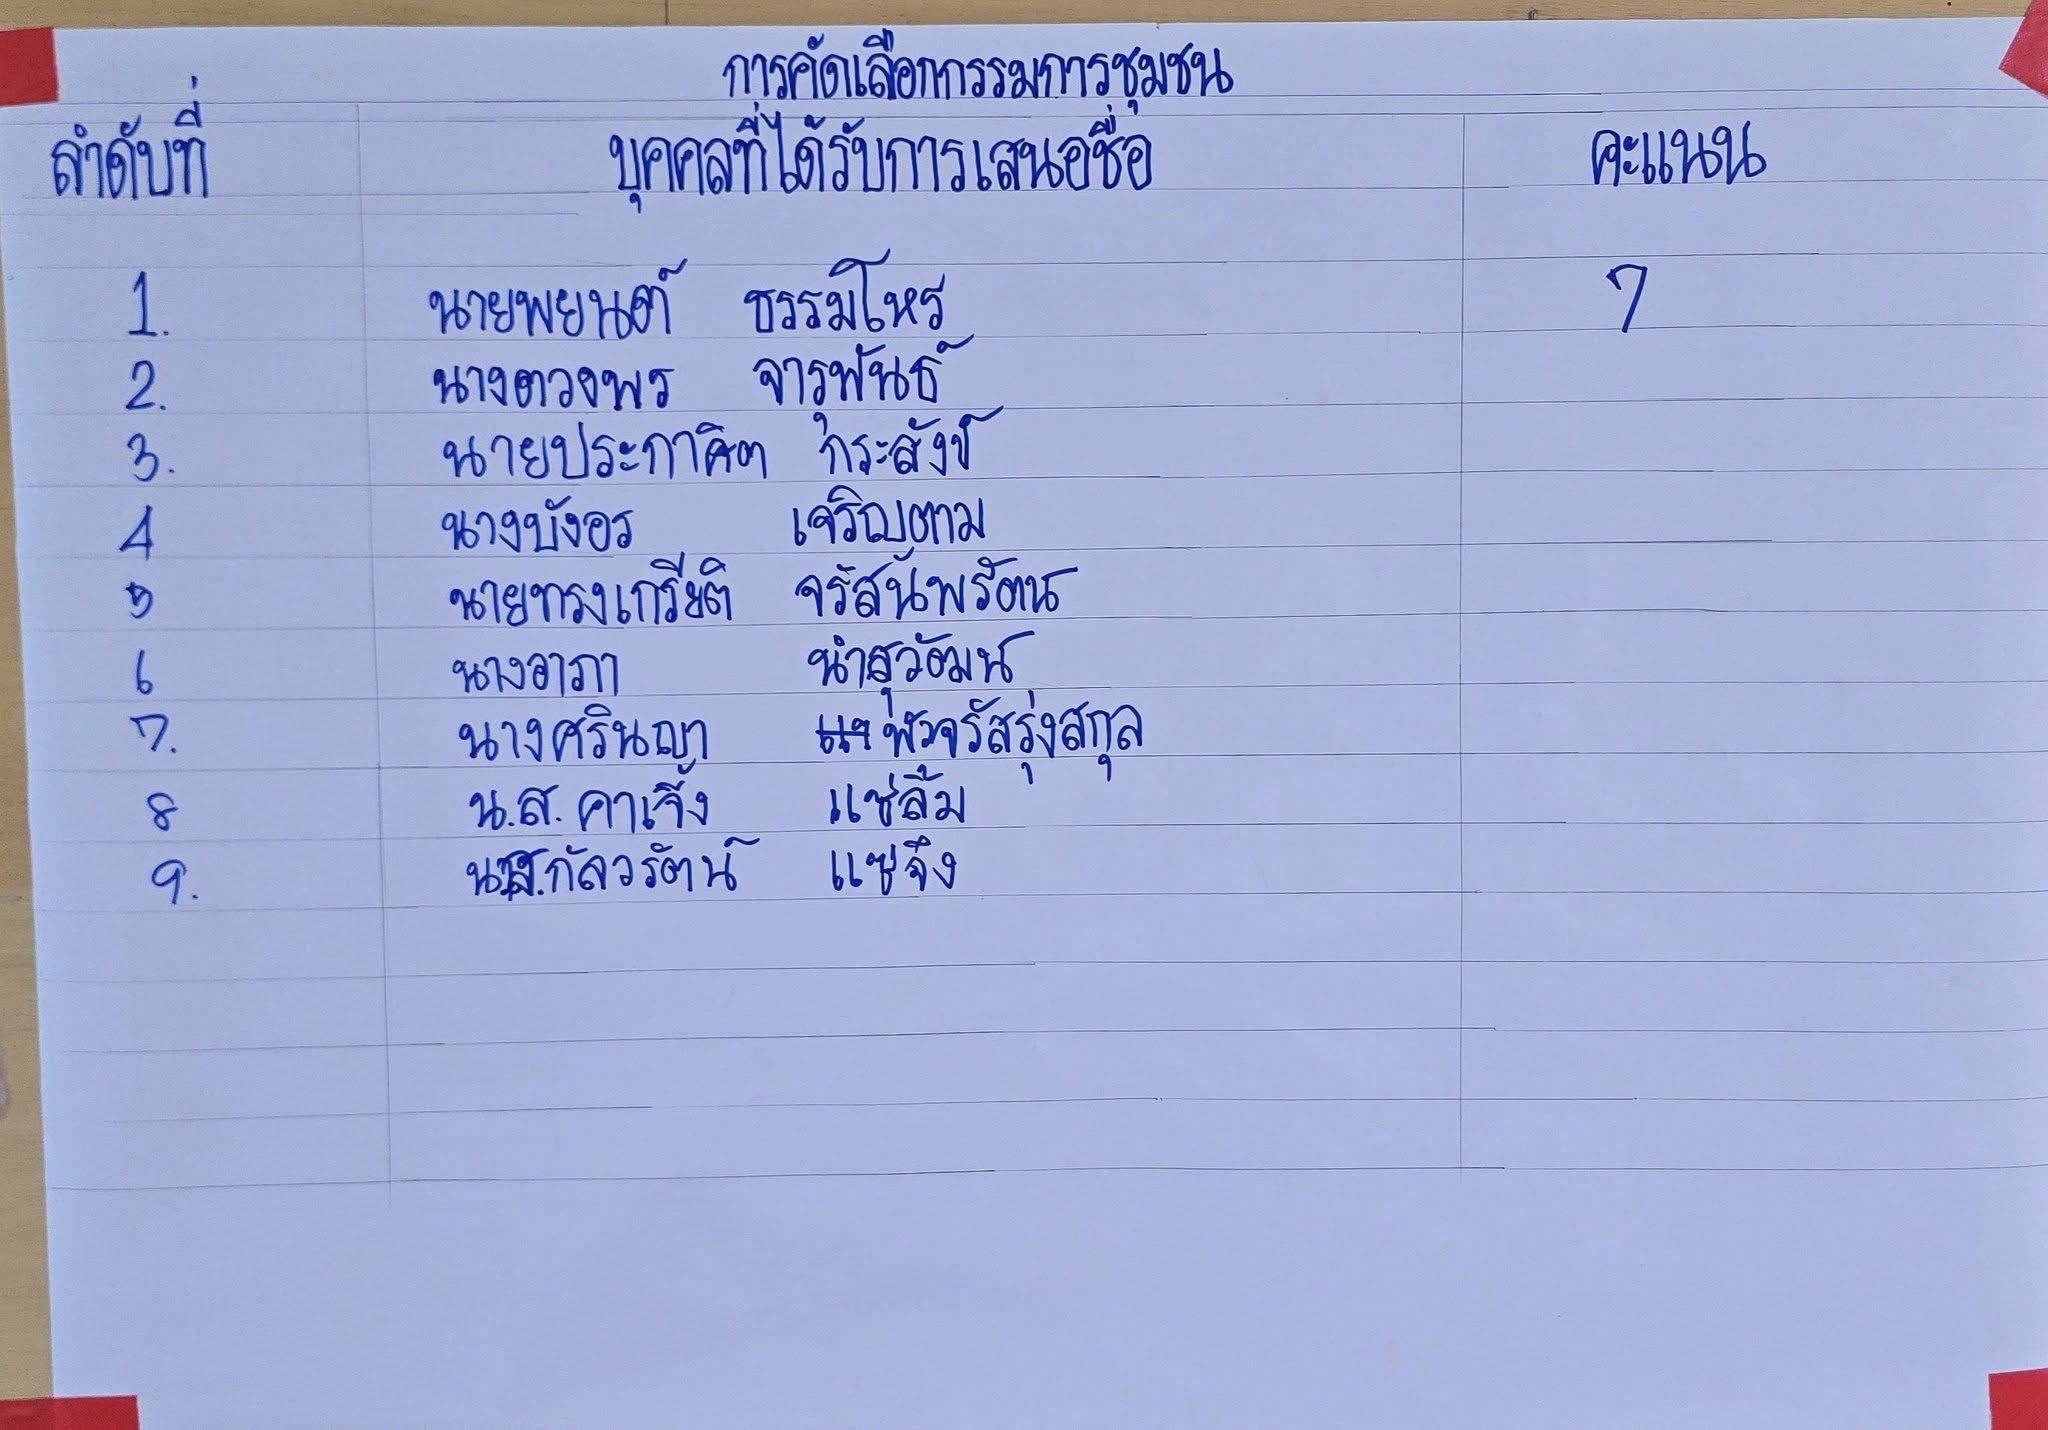 การคัดเลือกกรรมการชุมชน
ลำดับที่ บุคคลที่ได้รับการเสนอชื่อ คะแนน
1. นายพยนต์ ธรรมโหร 7
2. นางดวงพร จารุพันธ์
3. นายประกาศิต กระสังข์
4 นางบังอร เจริญตาม
5 นายทรงเกรียติ จรัสนันพรัตน
6 นางอาภา นำสุวัฒน์
7. นางศรินญา จรัสรุ่งสกุล
8 น.ส. คาเจ็ง แซ่ลิ้ม
9. น.ส.กัลวรัตน์ แซ่จึง